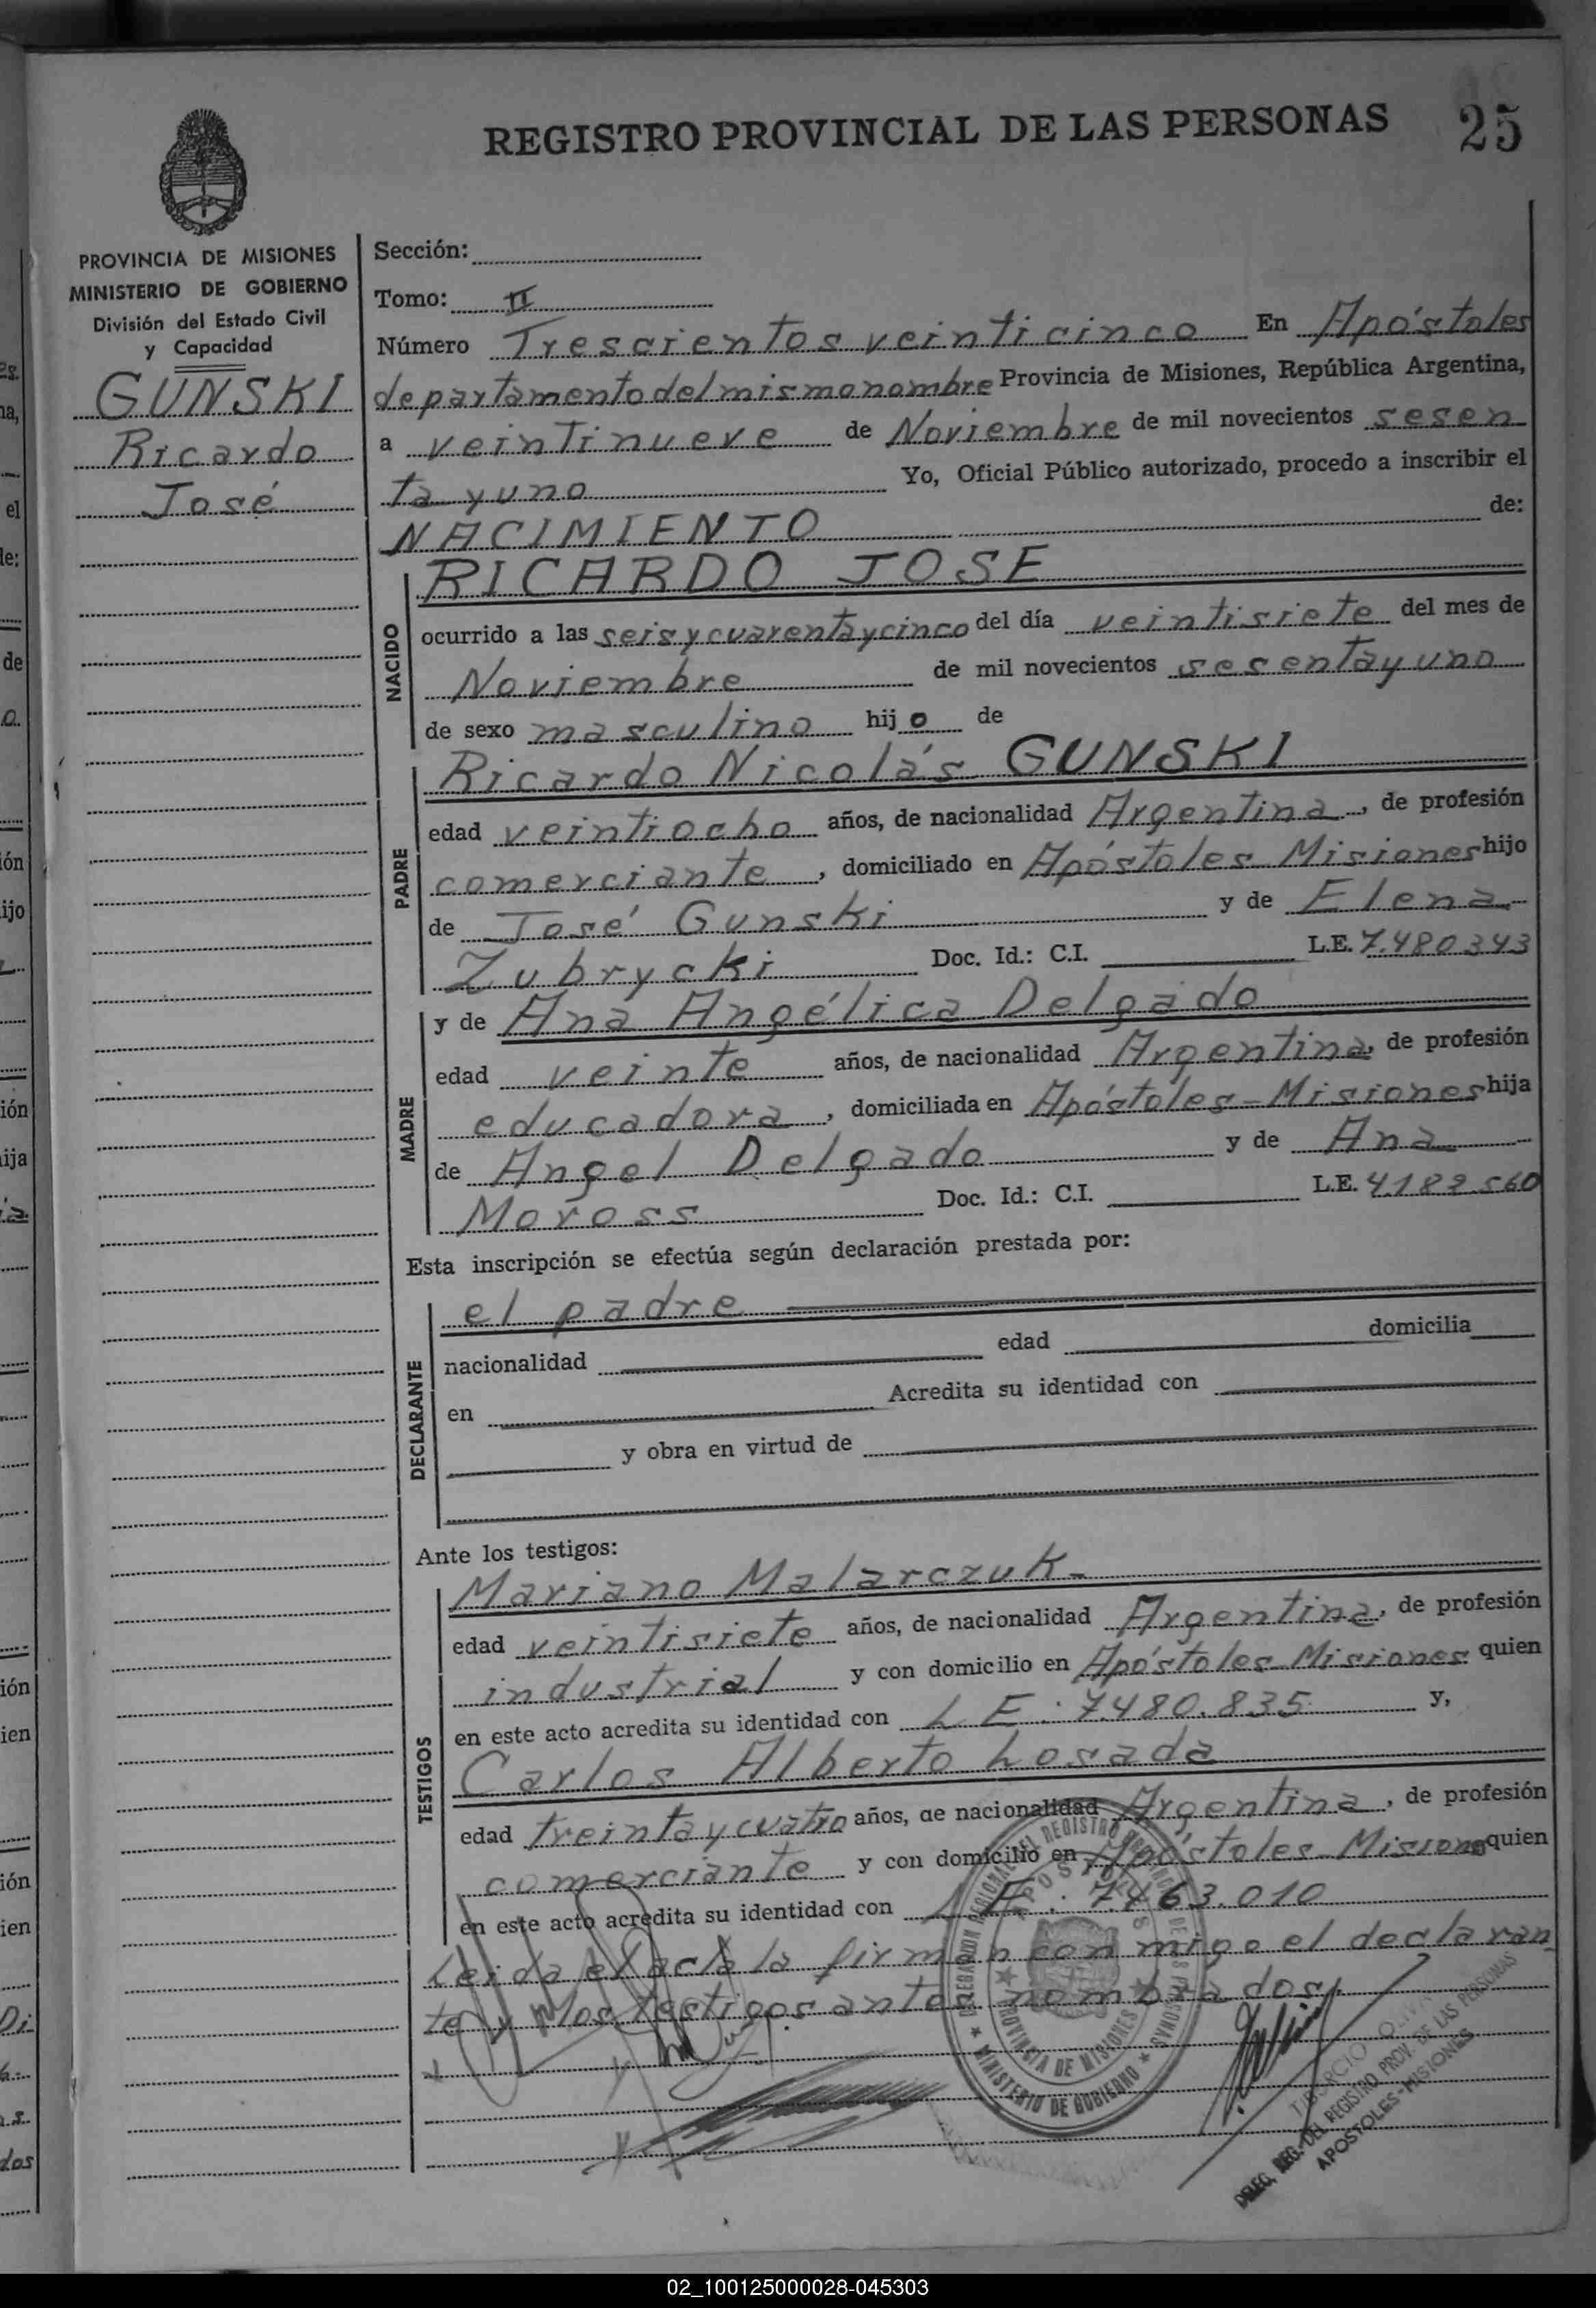 REGISTRO PROVINCIAL DE LAS PERSONAS 25
PROVINCIA DE MISIONES
MINISTERIO DE GOBIERNO
División del Estado Civil
y Capacidad
GUNSKI
Ricardo
José
Sección:
Tomo: II
Número Trescientos veinticinco En Apóstoles
departamento del mismo nombre Provincia de Misiones, República Argentina,
a veintinueve de Noviembre de mil novecientos sesen
ta y uno Yo, Oficial Público autorizado, procedo a inscribir el
NACIMIENTO de:
NACIDO
RICARDO JOSE
ocurrido a las seis y cuarenta y cinco del día veintisiete del mes de
Noviembre de mil novecientos sesenta y uno
de sexo masculino hijo de
PADRE
Ricardo Nicolás GUNSKI
edad veintiocho años, de nacionalidad Argentina, de profesión
comerciante, domiciliado en Apóstoles Misiones hijo
de José Gunski y de Elena
Zubrycki Doc. Id.: C.I. L.E. 7.480343
MADRE
y de Ana Angélica Delgado
edad veinte años, de nacionalidad Argentina, de profesión
educadora, domiciliada en Apóstoles - Misiones hija
de Angel Delgado y de Ana
Moross Doc. Id.: C.I. L.E. 4.182560
Esta inscripción se efectúa según declaración prestada por:
DECLARANTE
el padre
nacionalidad edad domicilia
en Acredita su identidad con
y obra en virtud de
Ante los testigos:
TESTIGOS
Mariano Malarczuk
edad veintisiete años, de nacionalidad Argentina, de profesión
industrial y con domicilio en Apóstoles Misiones quien
en este acto acredita su identidad con L E: 7.480.835 y,
Carlos Alberto Losada
edad treinta y cuatro años, de nacionalidad Argentina, de profesión
comerciante y con domicilio en Apóstoles Misiones quien
en este acto acredita su identidad con L E: 7.463.010
Leida el acta la firman conmigo el declaran
te y los testigos antes nombrados
DELEGACION REGIONAL DEL REGISTRO PROVINCIAL DE LAS PERSONAS
APOSTOLES
PROVINCIA DE MISIONES
MINISTERIO DE GOBIERNO
DELEG. REG. DEL REGISTRO PROV. DE LAS PERSONAS
APOSTOLES-MISIONES
02_100125000028-045303